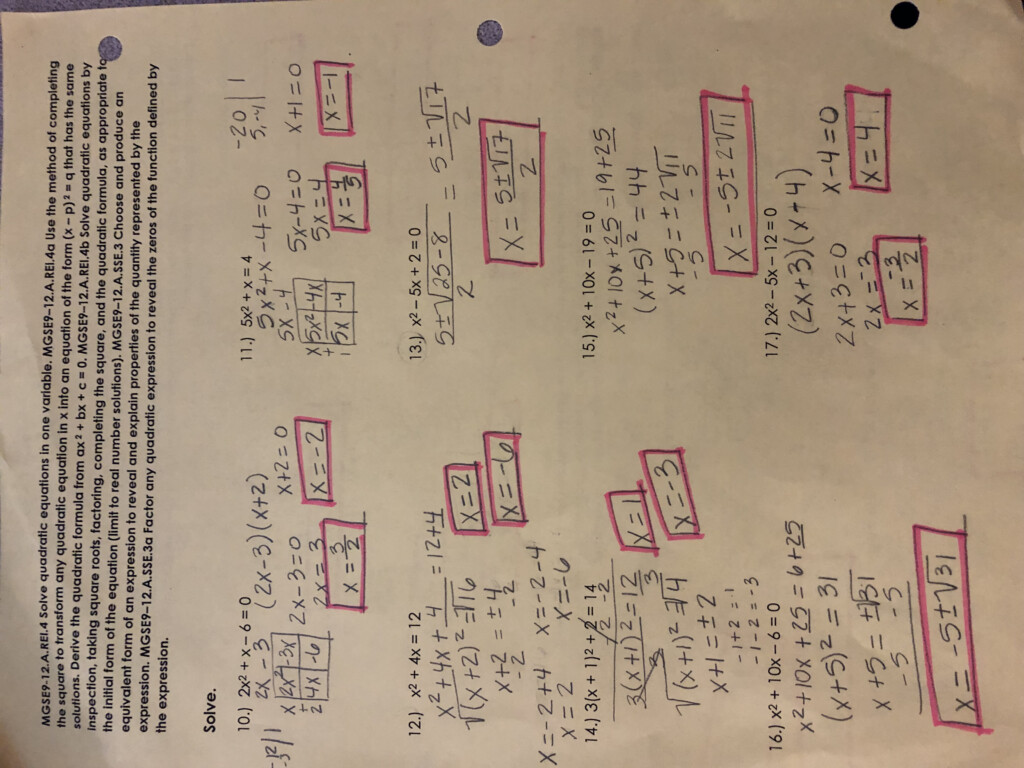 MGSE9-12.A.REI.4 Solve quadratic equations in one variable. MGSE9–12.A.REI.4a Use the method of completing
the square to transform any quadratic equation in x into an equation of the form (x – p)² = q that has the same
solutions. Derive the quadratic formula from ax² + bx + c = 0. MGSE9–12.A.REI.4b Solve quadratic equations by
inspection, taking square roots, factoring, completing the square, and the quadratic formula, as appropriate to
the initial form of the equation (limit to real number solutions). MGSE9–12.A.SSE.3 Choose and produce an
equivalent form of an expression to reveal and explain properties of the quantity represented by the
expression. MGSE9–12.A.SSE.3a Factor any quadratic expression to reveal the zeros of the function defined by
the expression.
Solve.
10.) 2x² + x – 6 = 0
2x - 3
(2x-3)(x+2)
x 2x² -3x
+
2 4x -6
2x-3=0
2x=3
x = 3/2
x+2=0
x=-2
11.) 5x² + x = 4
5x²+x-4=0
-20 | 1
5,-4
5x -4
x 5x² -4x
+
1 5x -4
5x-4=0
5x=4
x=4/5
x+1=0
x=-1
12.) x² + 4x = 12
x²+4x+4=12+4
√(x+2)²=√16
x+2=±4
-2 -2
x=-2+4 x=-2-4
x=2 x=-6
x=2
x=-6
13.) x² – 5x + 2 = 0
5±√25-8 / 2 = 5±√17 / 2
x = 5±√17 / 2
14.) 3(x + 1)² + 2 = 14
-2 -2
3(x+1)²=12
3 3
√(x+1)²=√4
x+1=±2
-1+2=1
-1-2=-3
x=1
x=-3
15.) x² + 10x – 19 = 0
x²+10x+25=19+25
(x+5)²=44
x+5=±2√11
-5 -5
x=-5±2√11
16.) x² + 10x – 6 = 0
x²+10x+25=6+25
(x+5)²=31
x+5=±√31
-5 -5
x=-5±√31
17.) 2x² – 5x – 12 = 0
(2x+3)(x+4)
2x+3=0
2x=-3
x=-3/2
x-4=0
x=4